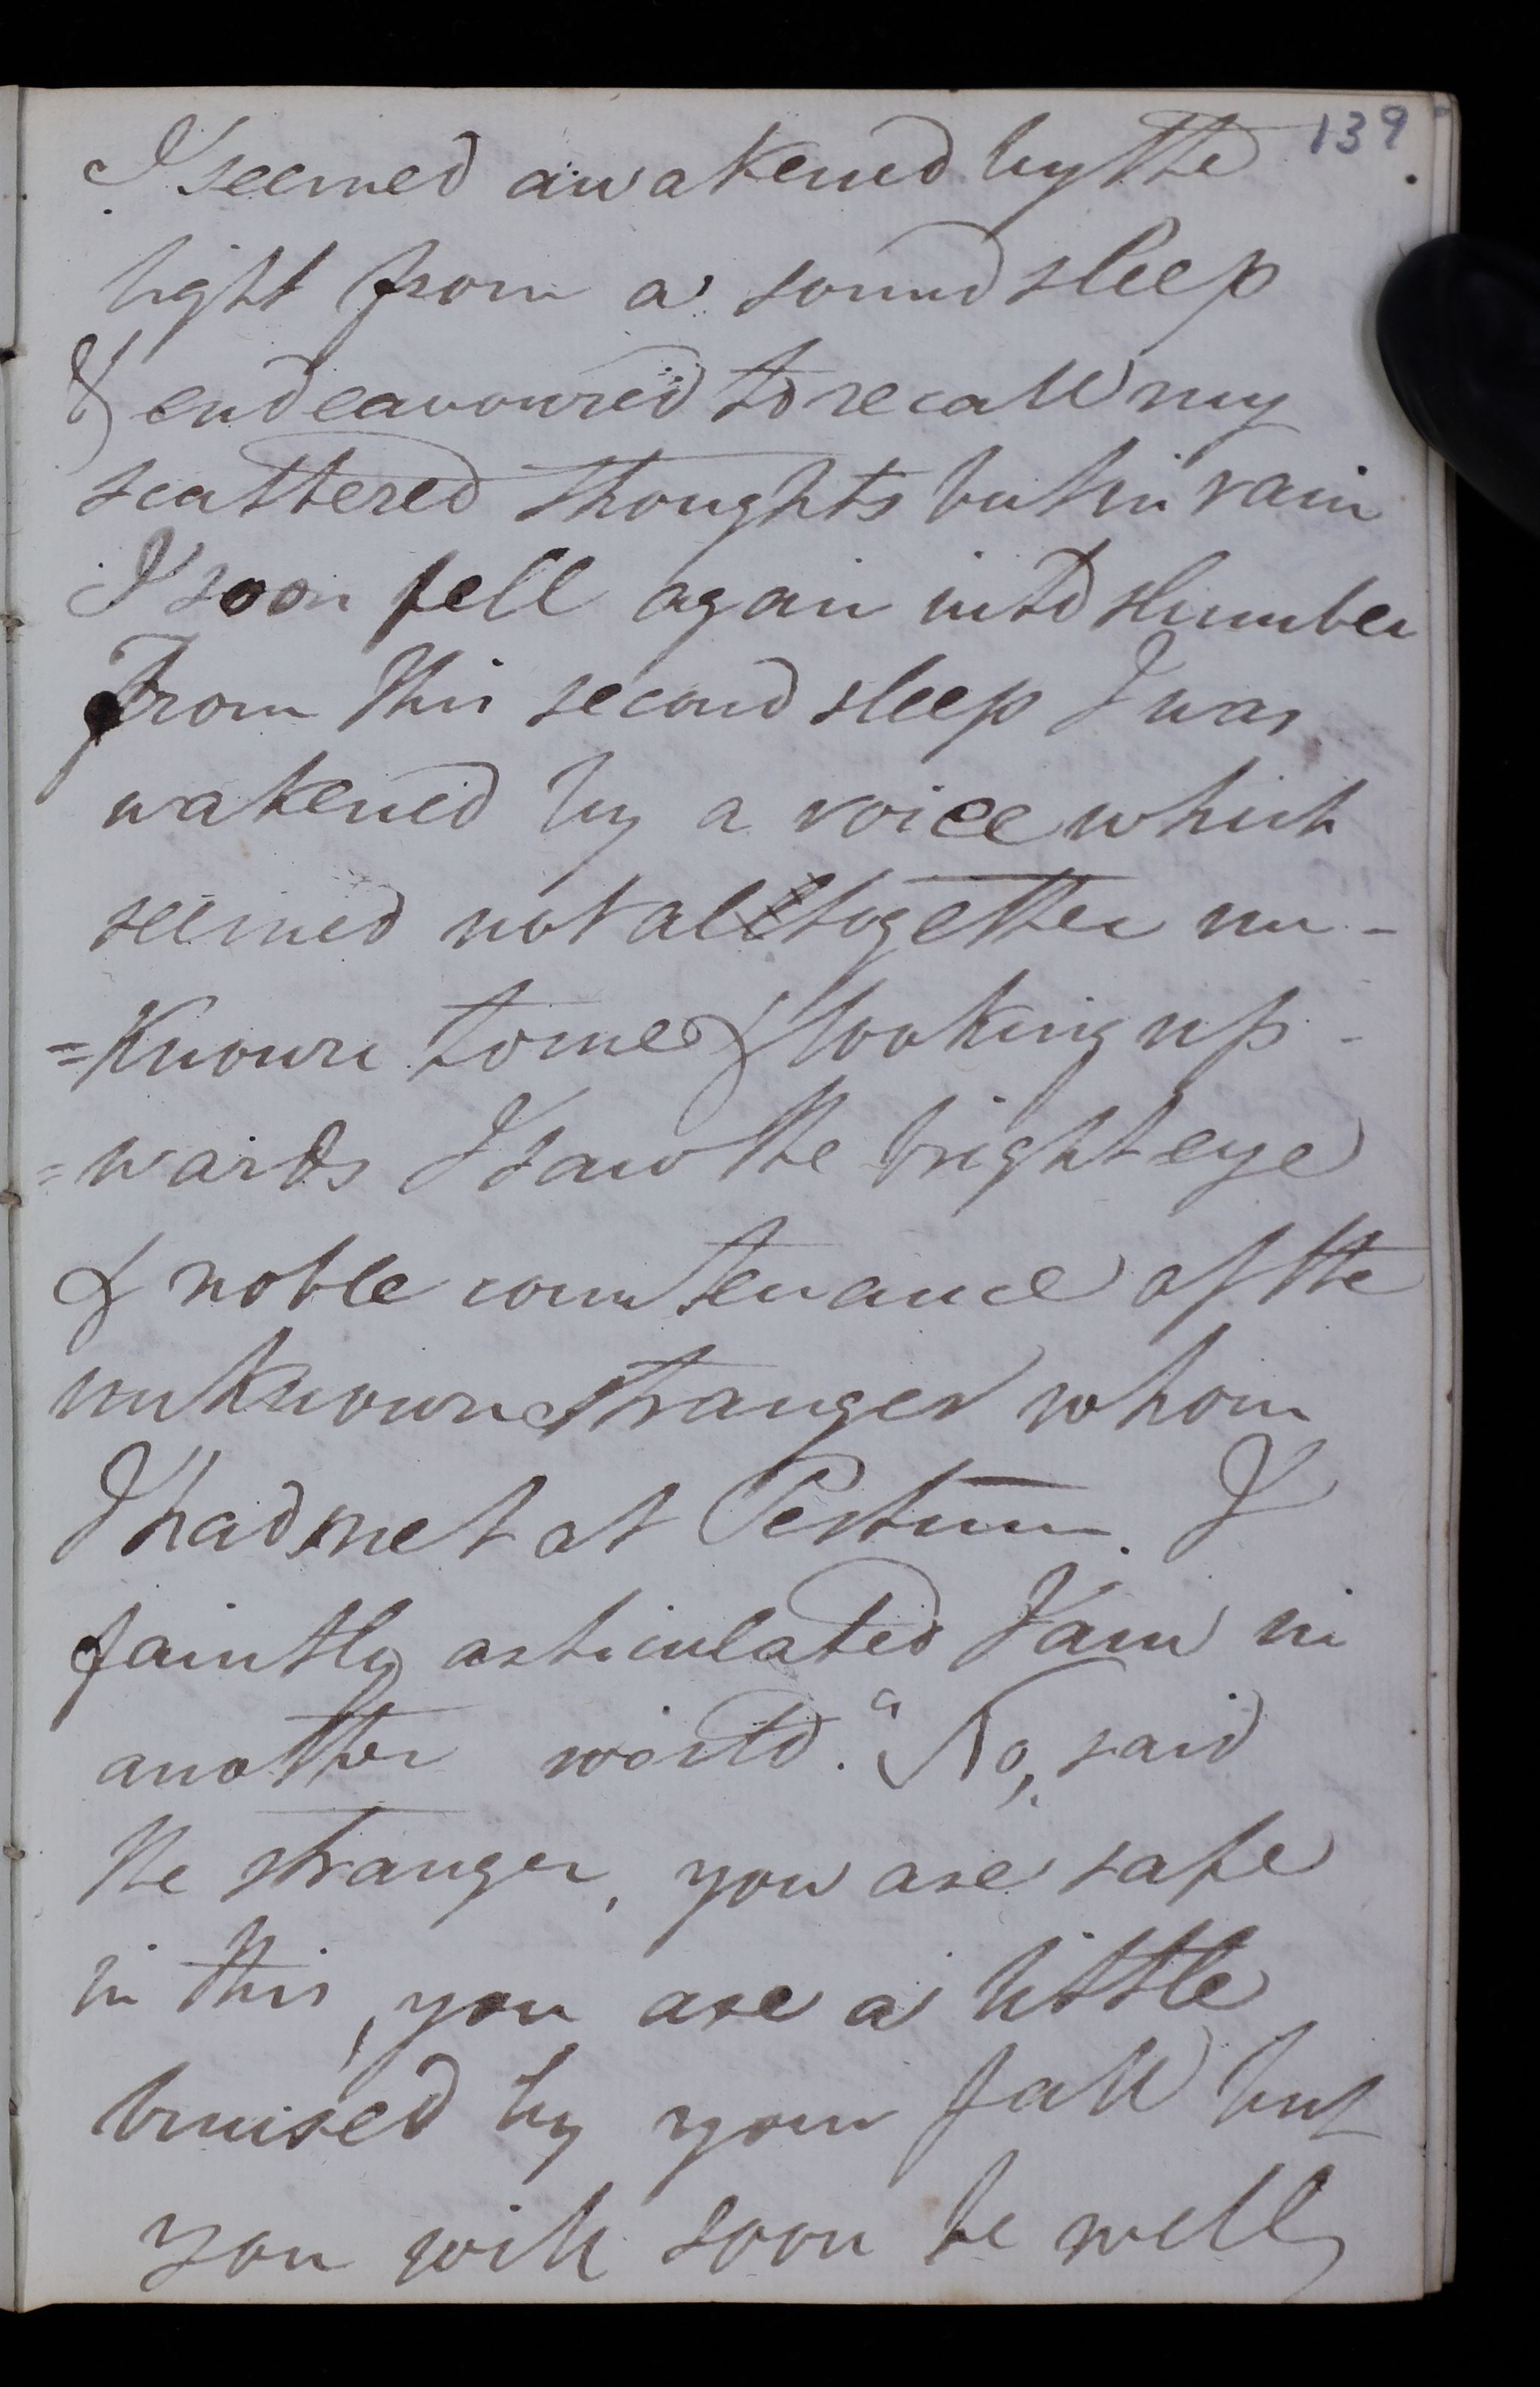 139
I seemed awakened by the
light from a sound sleep
& endeavoured to recall my
scattered thoughts but in vain
I soon fell again into slumber
From this second sleep I was
wakened by a voice which
seemed not altogether un-
=known to me & looking up-
=wards I saw the bright eye
& noble countenance of the
unknown stranger whom
I had met at Pestum. I
faintly articulated I am in
another world." No, said
the stranger, you are safe
in this, you are a little
bruised by your fall but
you will soon be well